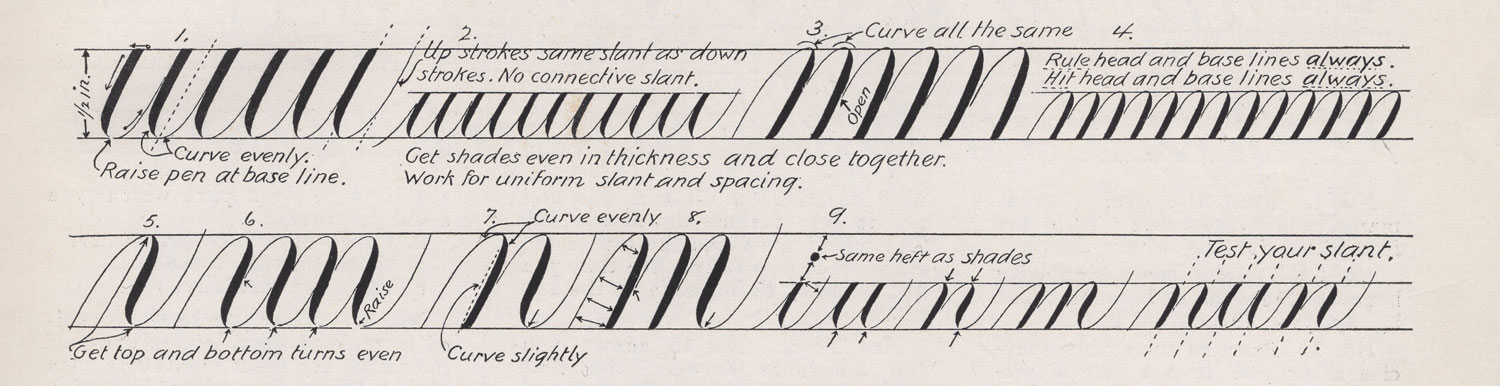 1.
2.
3.
Curve all the same
4.
1/2 in.
Up strokes same slant as down
strokes. No connective slant.
Open
Rule head and base lines always.
Hit head and base lines always.
Curve evenly.
Raise pen at base line.
Get shades even in thickness and close together.
Work for uniform slant and spacing.
5.
6.
7.
Curve evenly
8.
9.
Same heft as shades
Test your slant.
Raise
i u n m nun
Get top and bottom turns even
Curve slightly